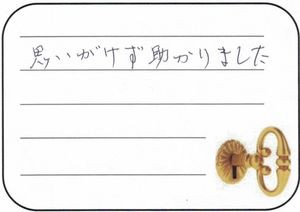 思いがけず助かりました